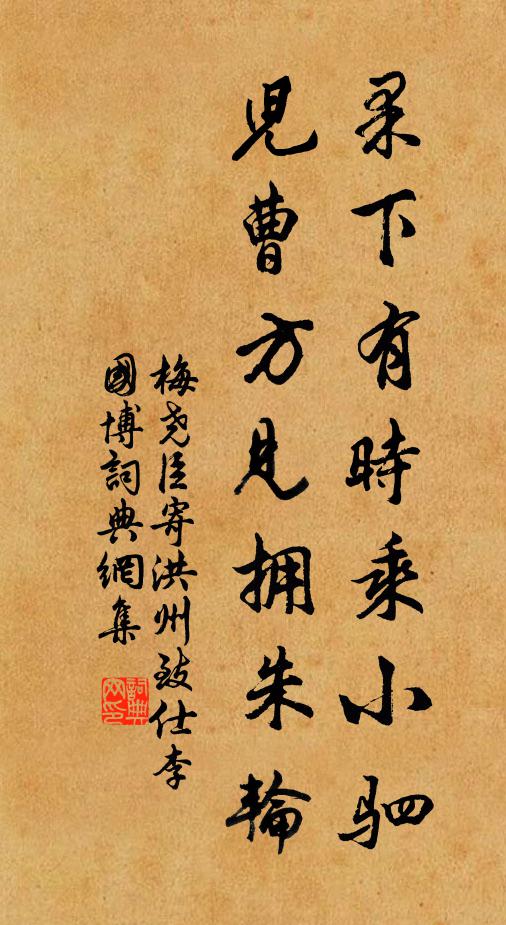 果下有時乘小駟
兒曹方見拥朱輪
梅尧臣寄洪州致仕李
國博詞典網集
詞典网印